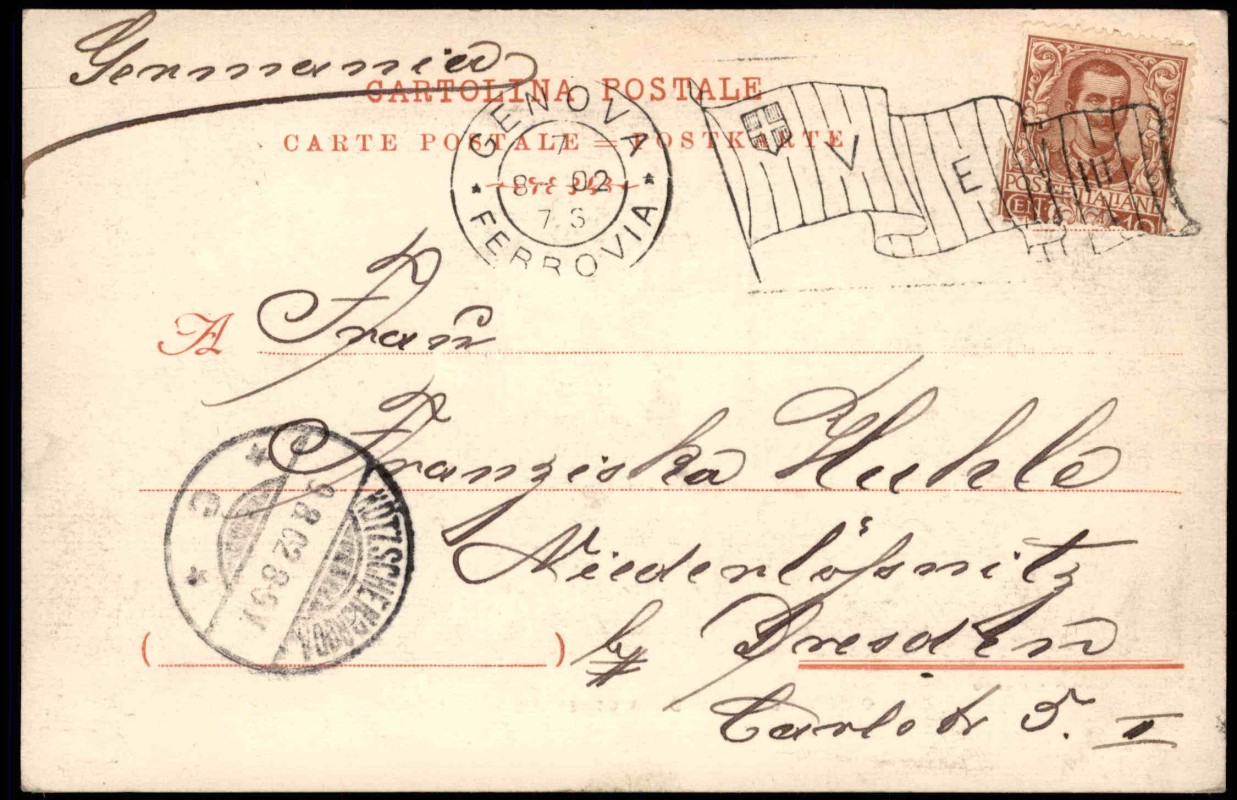 Germania
CARTOLINA POSTALE
CARTE POSTALE = POSTKARTE
GENOVA
7
8- 02
7 S
FERROVIA
V E
POSTE ITALIANE
A Frau
Franziska Huhle
Niederlößnitz
by Dresden
Carlostr 5. II
KÖTZSCHENBRODA
9.8.02.8-9V.
c